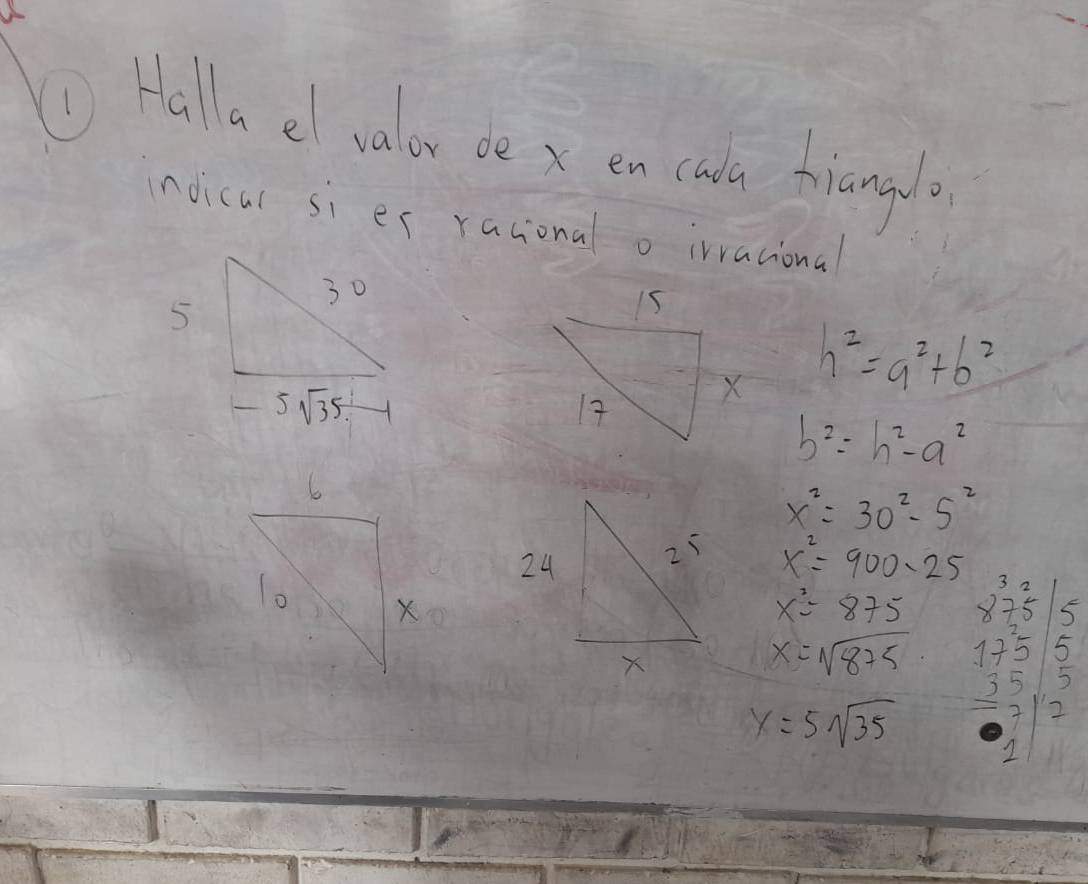 ① Halla el valor de x en cada triangulo,
indicar si es racional o irracional
5
30
5√35
15
17
x
6
10
x
24
25
x
h² = a² + b²
b² = h² - a²
x² = 30² - 5²
x² = 900 - 25
x² = 875
x = √875
x = 5√35
875 | 5
175 | 5
35 | 5
7 | 7
1